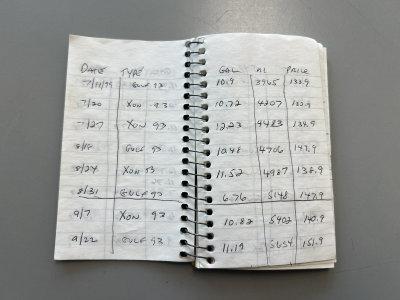 DATE TYPE GAL MI PRICE
7/11/99 GULF 93 10.9 3965 133.9
7/20 XON 93 10.72 4207 133.9
7/27 XON 93 12.23 4483 134.9
8/18 GULF 93 10.48 4706 147.9
8/24 XON 93 11.52 4987 138.9
8/31 GULF 93 6.76 5148 147.9
9/7 XON 93 10.82 5402 140.9
9/22 GULF 93 11.19 5654 151.9